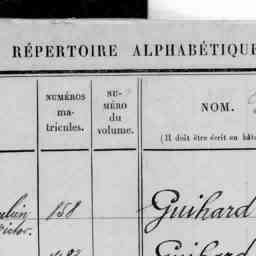 RÉPERTOIRE ALPHABÉTIQUE
NUMÉROS
ma-
tricules.
NU-
MÉRO
du
volume.
NOM.
(Il doit être écrit en bât
158
Guihard
Guihard